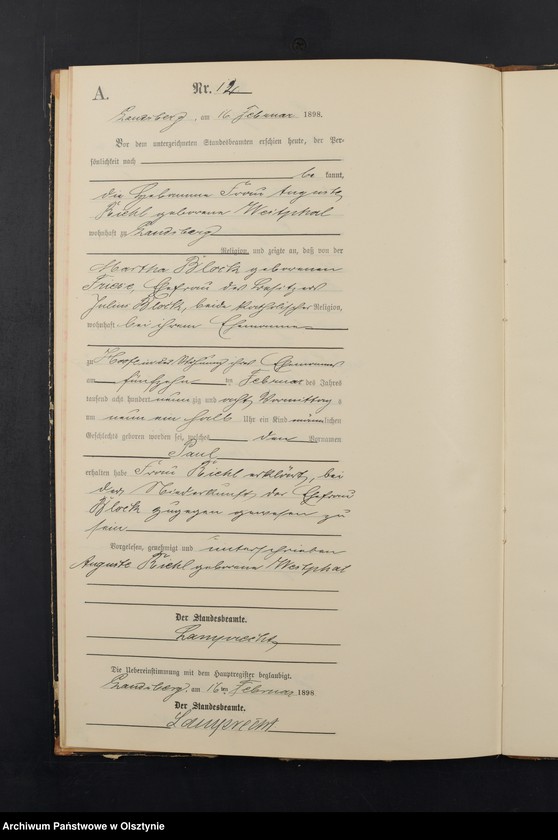 A.
Nr. 12
Landsberg, am 16 Februar 1898.
Vor dem unterzeichneten Standesbeamten erschien heute, der Per-
sönlichkeit nach
be kannt,
die Hebamme Frau Auguste
Kiehl geborene Westphal
wohnhaft zu Landsberg
Religion, und zeigte an, daß von der
Martha Block geborenen
Friese, Ehefrau des Besitzers
Julius Block, beide katholischer Religion,
wohnhaft bei ihrem Ehemanne
zu in der Wohnung ihres Ehemannes
am fünfzehn ten Februar des Jahres
tausend acht hundert neun zig und acht Vormittags
um neun ein halb Uhr ein Kind männlichen
Geschlechts geboren worden sei, welches den Vornamen
Paul
erhalten habe. Frau Kiehl erklärt, bei
der Niederkunft der Ehefrau
Block zugegen gewesen zu
sein.
Vorgelesen, genehmigt und unterschrieben
Auguste Kiehl geborene Westphal
Der Standesbeamte.
Lamprecht
Die Uebereinstimmung mit dem Hauptregister beglaubigt.
Landsberg, am 16ten Februar 1898
Der Standesbeamte.
Lamprecht
Archiwum Państwowe w Olsztynie